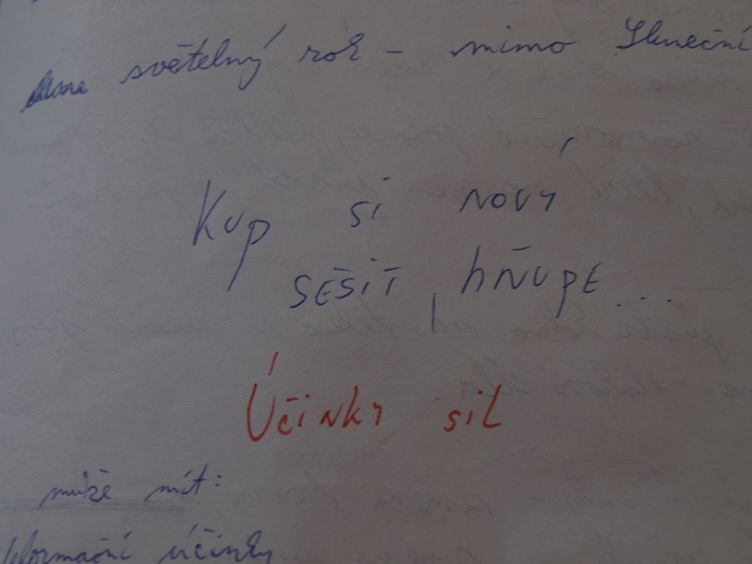 světelný rok - mimo Sluneční
Kup si nový
sešit, hňupe...
Účinky sil
může mít:
deformační účinky